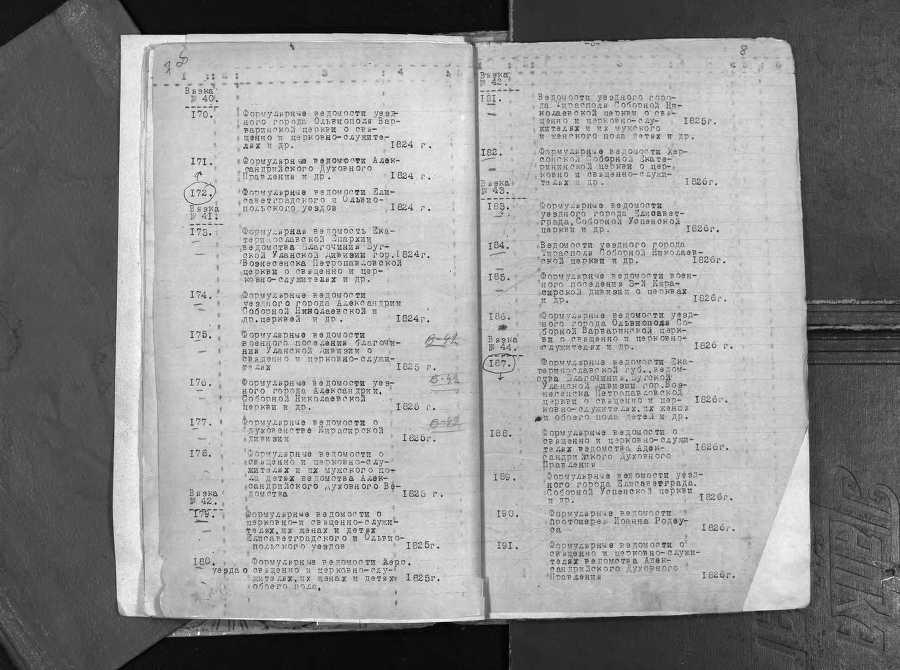 I :: 2 : 3 : 4 : 5
Вязка
№ 40.
I70. Формулярные ведомости уезд-
ного города Ольвиополя Вар-
варинской церкви о свя-
щенно и церковно-служите-
лях и др. I824 г.
I7I. Формулярные ведомости Алек-
сандрийского Духовного
Правления и др. I824 г.
I72. Формулярные ведомости Ели-
саветградского и Ольвио-
польского уездов I824 г.
Вязка
№ 4I.
I73. Формулярная ведомость Ека-
теринославской Епархии
ведомства Благочиния Буг-
ской Уланской Дивизии гор. I824г.
Вознесенска Петропавловской
церкви о священно и цер-
ковно-служителях и др.
I74. Формулярные ведомости
уездного города Александрии
Соборной Николаевской и
др.церквей и др. I824г.
I75. Формулярные ведомости
военного поселения благочи-
ния Уланской Дивизии о
священно и церковно-служи-
телях I825 г.
I76. Формулярные ведомости уез-
ного города Александрии,
Соборной Николаевской
церкви и др. I825 г.
I77. Формулярные ведомости о
духовенстве Кирасирской
дивизии I825г.
I78. Формулярные ведомости о
священно и церковно-слу-
жителях и их мужского по-
ла детях ведомства Алек-
сандрийского Духовного Ве-
домства I825 г.
Вязка
№ 42.
I79. Формулярные ведомости о
церковно-и священно-служи-
телях,их женах и детях
Елисаветградского и Ольвио-
польского уездов I825г.
I80. Формулярные ведомости Херс.
уезда о священно и церковно-слу-
жителях,их женах и детях I825г.
обоего пола.
8
Вязка
№ 42.
I8I. Ведомости уездного горо-
да Тирасполя Соборной Ни-
колаевской церкви о свя-
щенно и церковно-слу- I825г.
жителях и их мужского
и женского пола детях и др.
I82. Формулярные ведомости Хер-
сонской Соборной Екате-
рининской церкви о цер-
ковно и священно-служи-
телях и др. I826г.
Вязка
№ 43.
I83. Формулярные ведомости
уездного города Елисавет-
града,Соборной Успенской
церкви и др. I826г.
I84. Ведомости уездного города
Тирасполя Соборной Николаев-
ской церкви и др. I826г.
I85. Формулярные ведомости воен-
ного поселения 3-й Кира-
сирской Дивизии о церквах
и др. I826г.
I86. Формулярные ведомости уезд-
ного города Ольвиополя Со-
борной Варваринской церк-
ви о священно и церковно-
служителях и др. I826 г.
Вязка
№ 44.
I87. Формулярные ведомости Ека-
теринославской губ.,ведом-
ства Благочиния,Бугской
Уланской дивизии гор.Воз-
несенска Петропавловской
церкви о священно и цер- I826г.
ковно-служителях,их женах
и обоего пола детей и др.
I88. Формулярные ведомости о
священно и церковно-служи-
телях ведомства Алек- I826г.
сандрийского Духовного
Правления
I89. Формулярные ведомости уезд-
ного города Елисаветграда,
Соборной Успенской церкви
и др. I826г.
I90. Формулярные ведомости
Протоиерея Иоанна Родзу-
са I826г.
I9I. Формулярные ведомости о
священно и церковно-служи-
телях ведомства Алек-
сандрийского Духовного
Правления I826г.